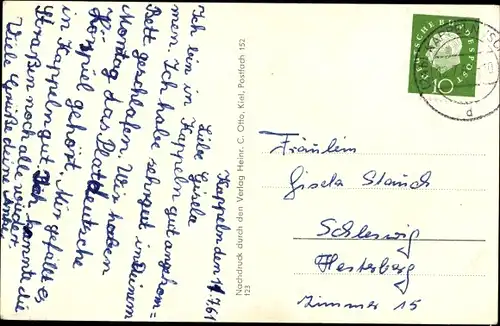 Kappeln den 11.7.61
Liebe Gisela
Ich bin in Kappeln gut angekom=
men. Ich habe sehr gut in Deinem
Bett geschlafen. Wir haben
Montag das Plattdeutsche
Hörspiel gehört. Mir gefällt es
in Kappeln gut. Ich kannte die
Straßen noch alle wieder.
Viele Grüße deine
Nachdruck durch den Verlag Heinr. C. Otto, Kiel, Postfach 152
123
DEUTSCHE BUNDESPOST
10
Fräulein
Gisela Stauch
Schleswig
Hesterberg
Zimmer 15